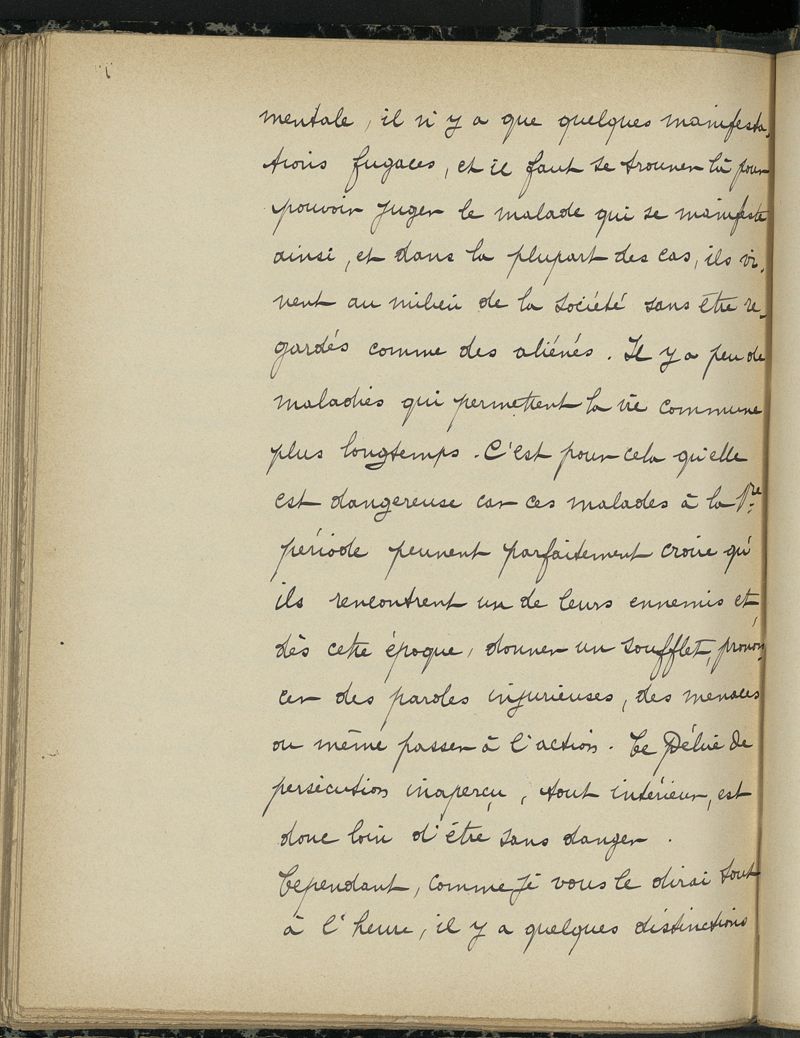 mentale, il n'y a que quelques manifesta-
tions fugaces, et il faut se trouver là pour
pouvoir juger le malade qui se manifeste
ainsi, et dans la plupart des cas, ils vi-
vent au milieu de la société sans être re-
gardés comme des aliénés. Il y a peu de
maladies qui permettent la vie commune
plus longtemps. C'est pour cela qu'elle
est dangereuse car ces malades à la 1re
période peuvent parfaitement croire qu'
ils rencontrent un de leurs ennemis et,
dès cette époque, donner un soufflet, pronon-
cer des paroles injurieuses, des menaces
ou même passer à l'action. Ce Délire de
persécution inaperçu, tout intérieur, est
donc loin d'être sans danger.
Cependant, comme je vous le dirai tout
à l'heure, il y a quelques distinctions